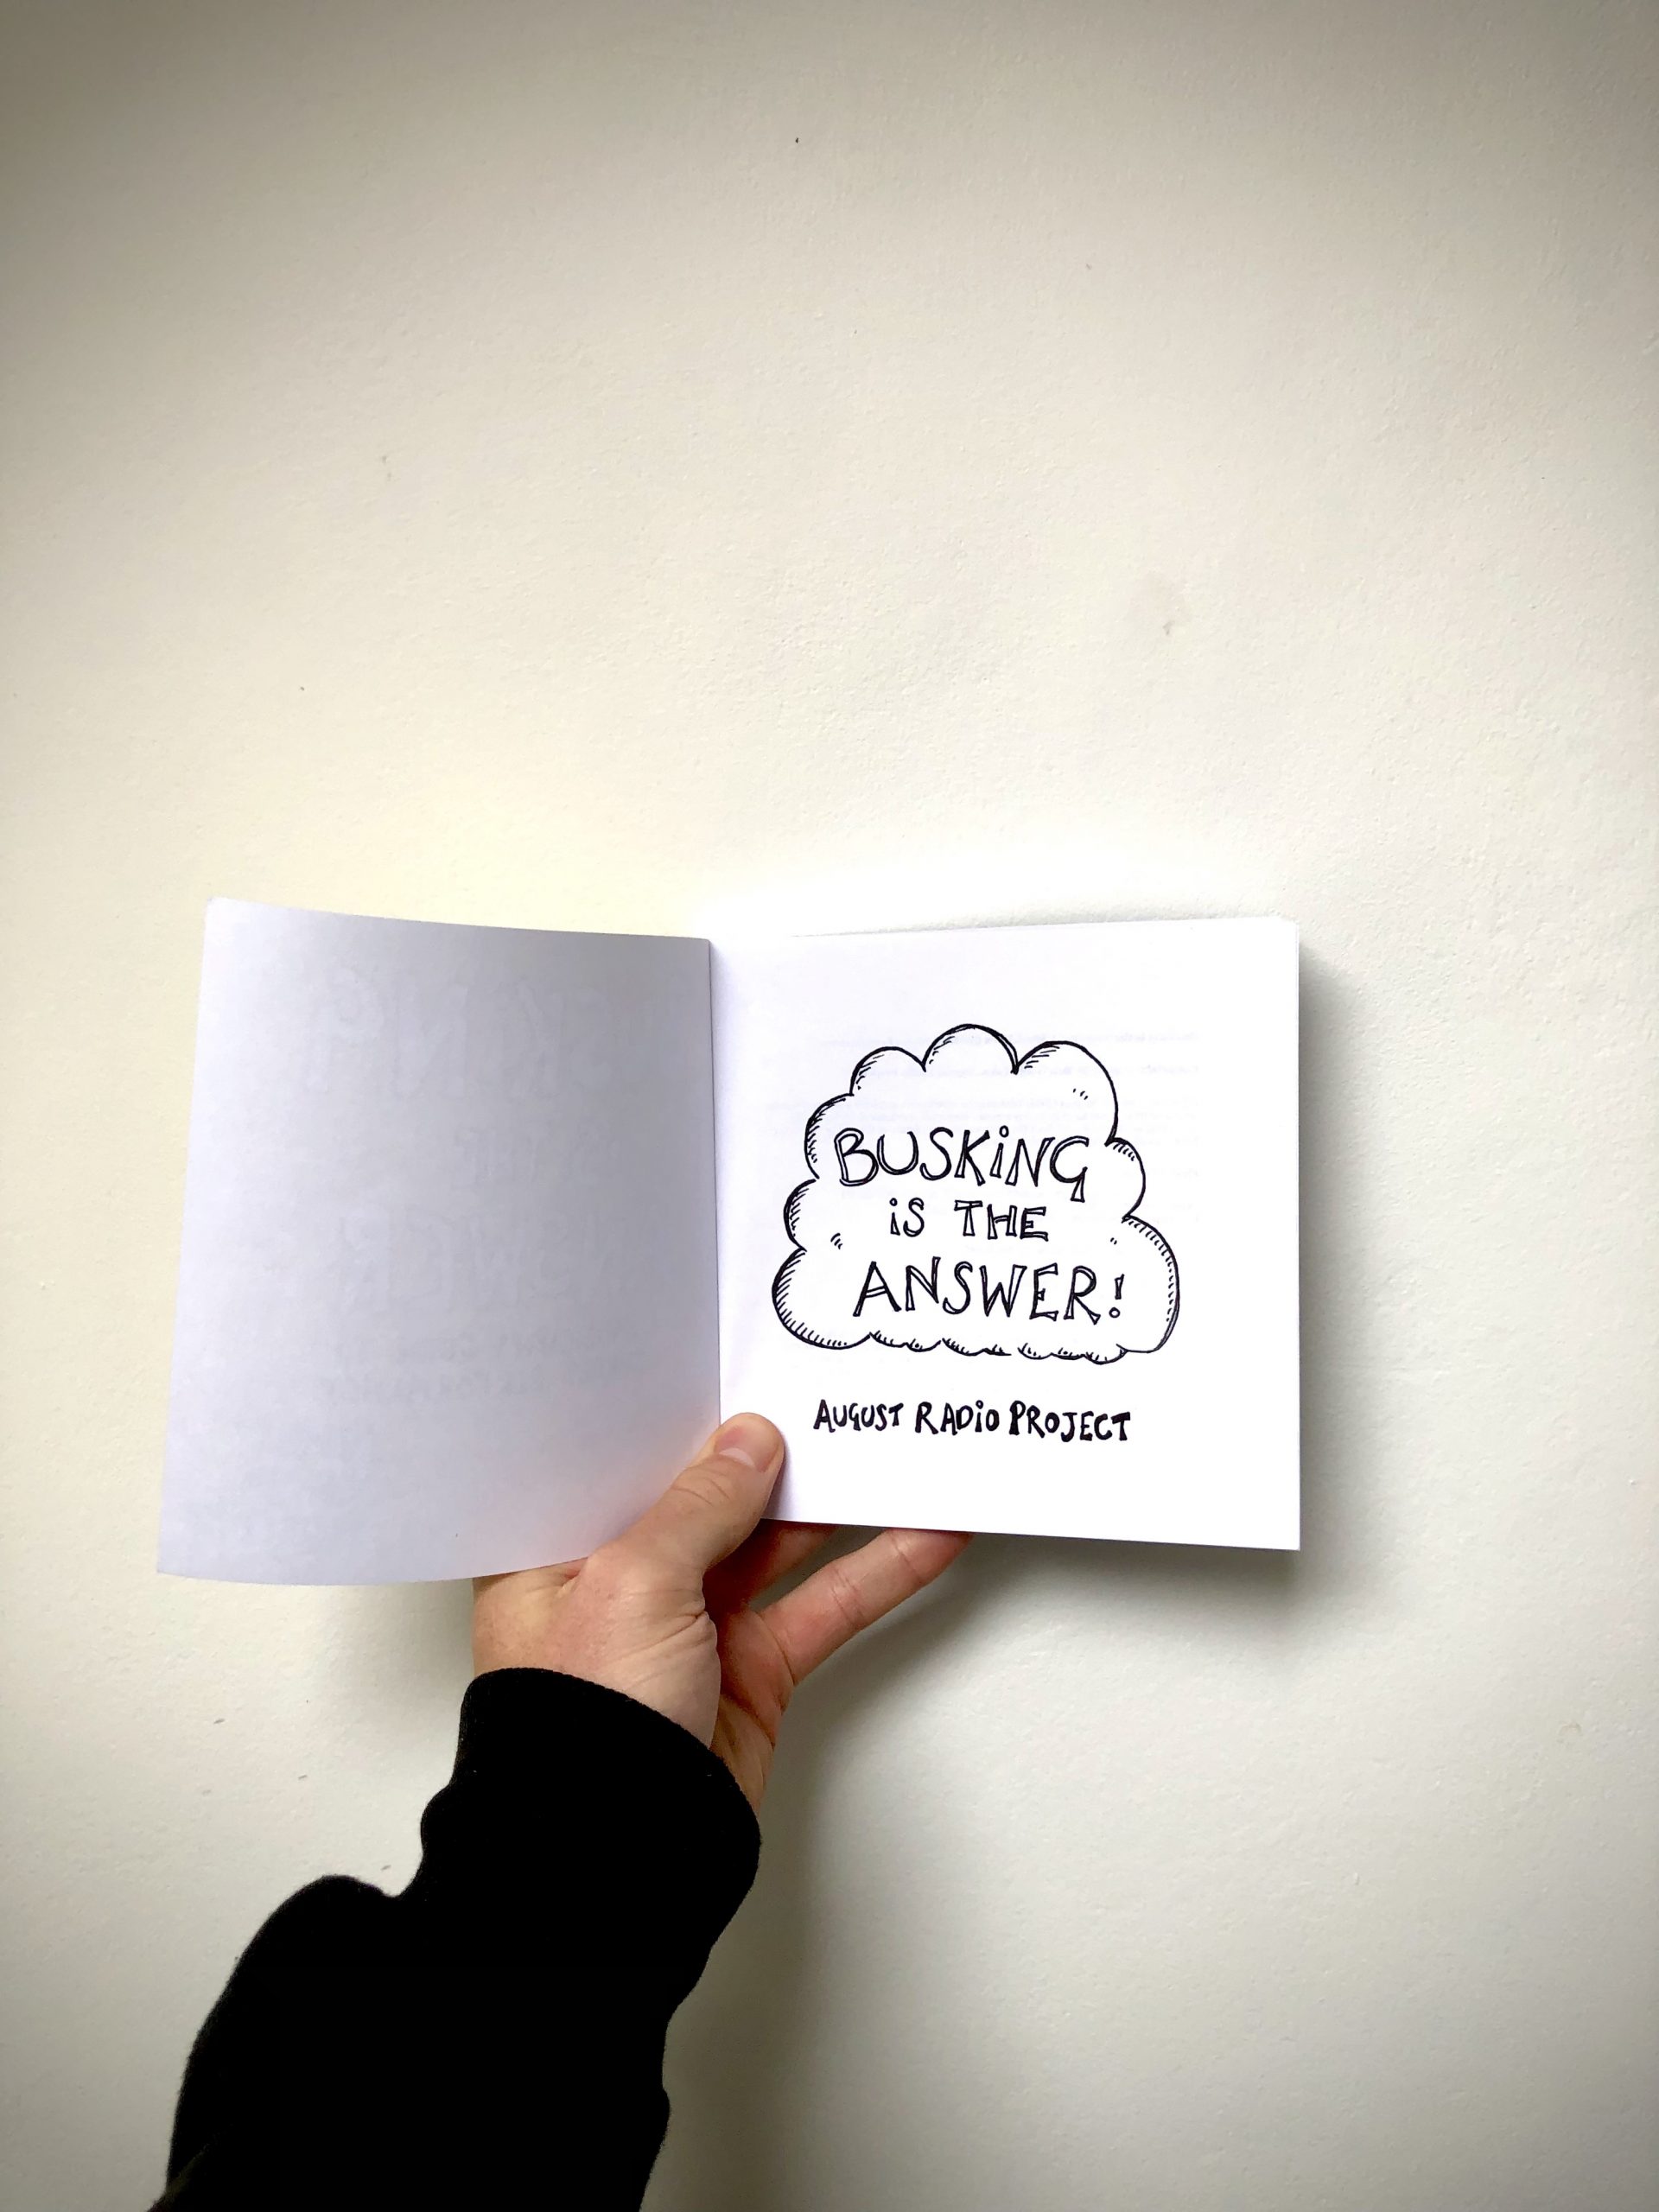 BUSKiNG
iS THE
ANSWER!
AUGUST RADiO PROJECT